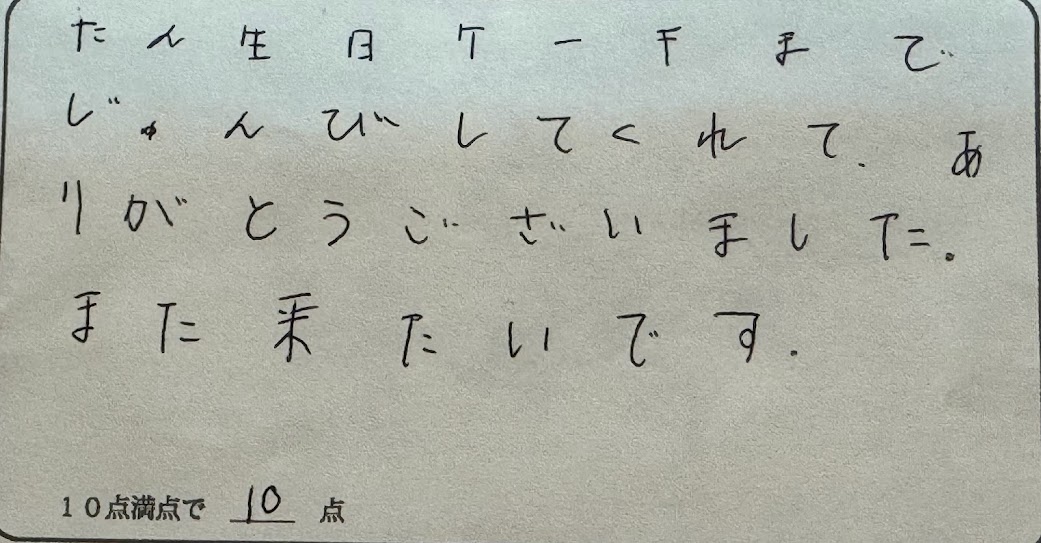 たん生日ケーキまで
じゅんびしてくれて.あ
りがとうございました.
また来たいです.
10点満点で 10 点